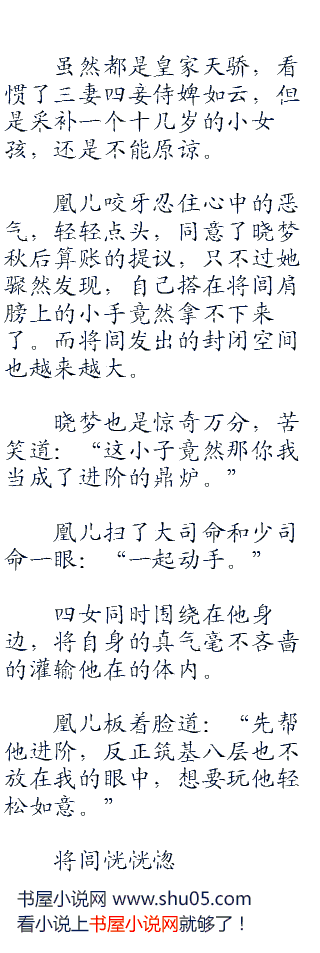 虽然都是皇家天骄，看
惯了三妻四妾侍婢如云，但
是采补一个十几岁的小女
孩，还是不能原谅。
凰儿咬牙忍住心中的恶
气，轻轻点头，同意了晓梦
秋后算账的提议，只不过她
骤然发现，自己搭在将闾肩
膀上的小手竟然拿不下来
了。而将闾发出的封闭空间
也越来越大。
晓梦也是惊奇万分，苦
笑道：“这小子竟然那你我
当成了进阶的鼎炉。”
凰儿扫了大司命和少司
命一眼：“一起动手。”
四女同时围绕在他身
边，将自身的真气毫不吝啬
的灌输他在的体内。
凰儿板着脸道：“先帮
他进阶，反正筑基八层也不
放在我的眼中，想要玩他轻
松如意。”
将闾恍恍惚
书屋小说网 www.shu05.com
看小说上书屋小说网就够了！